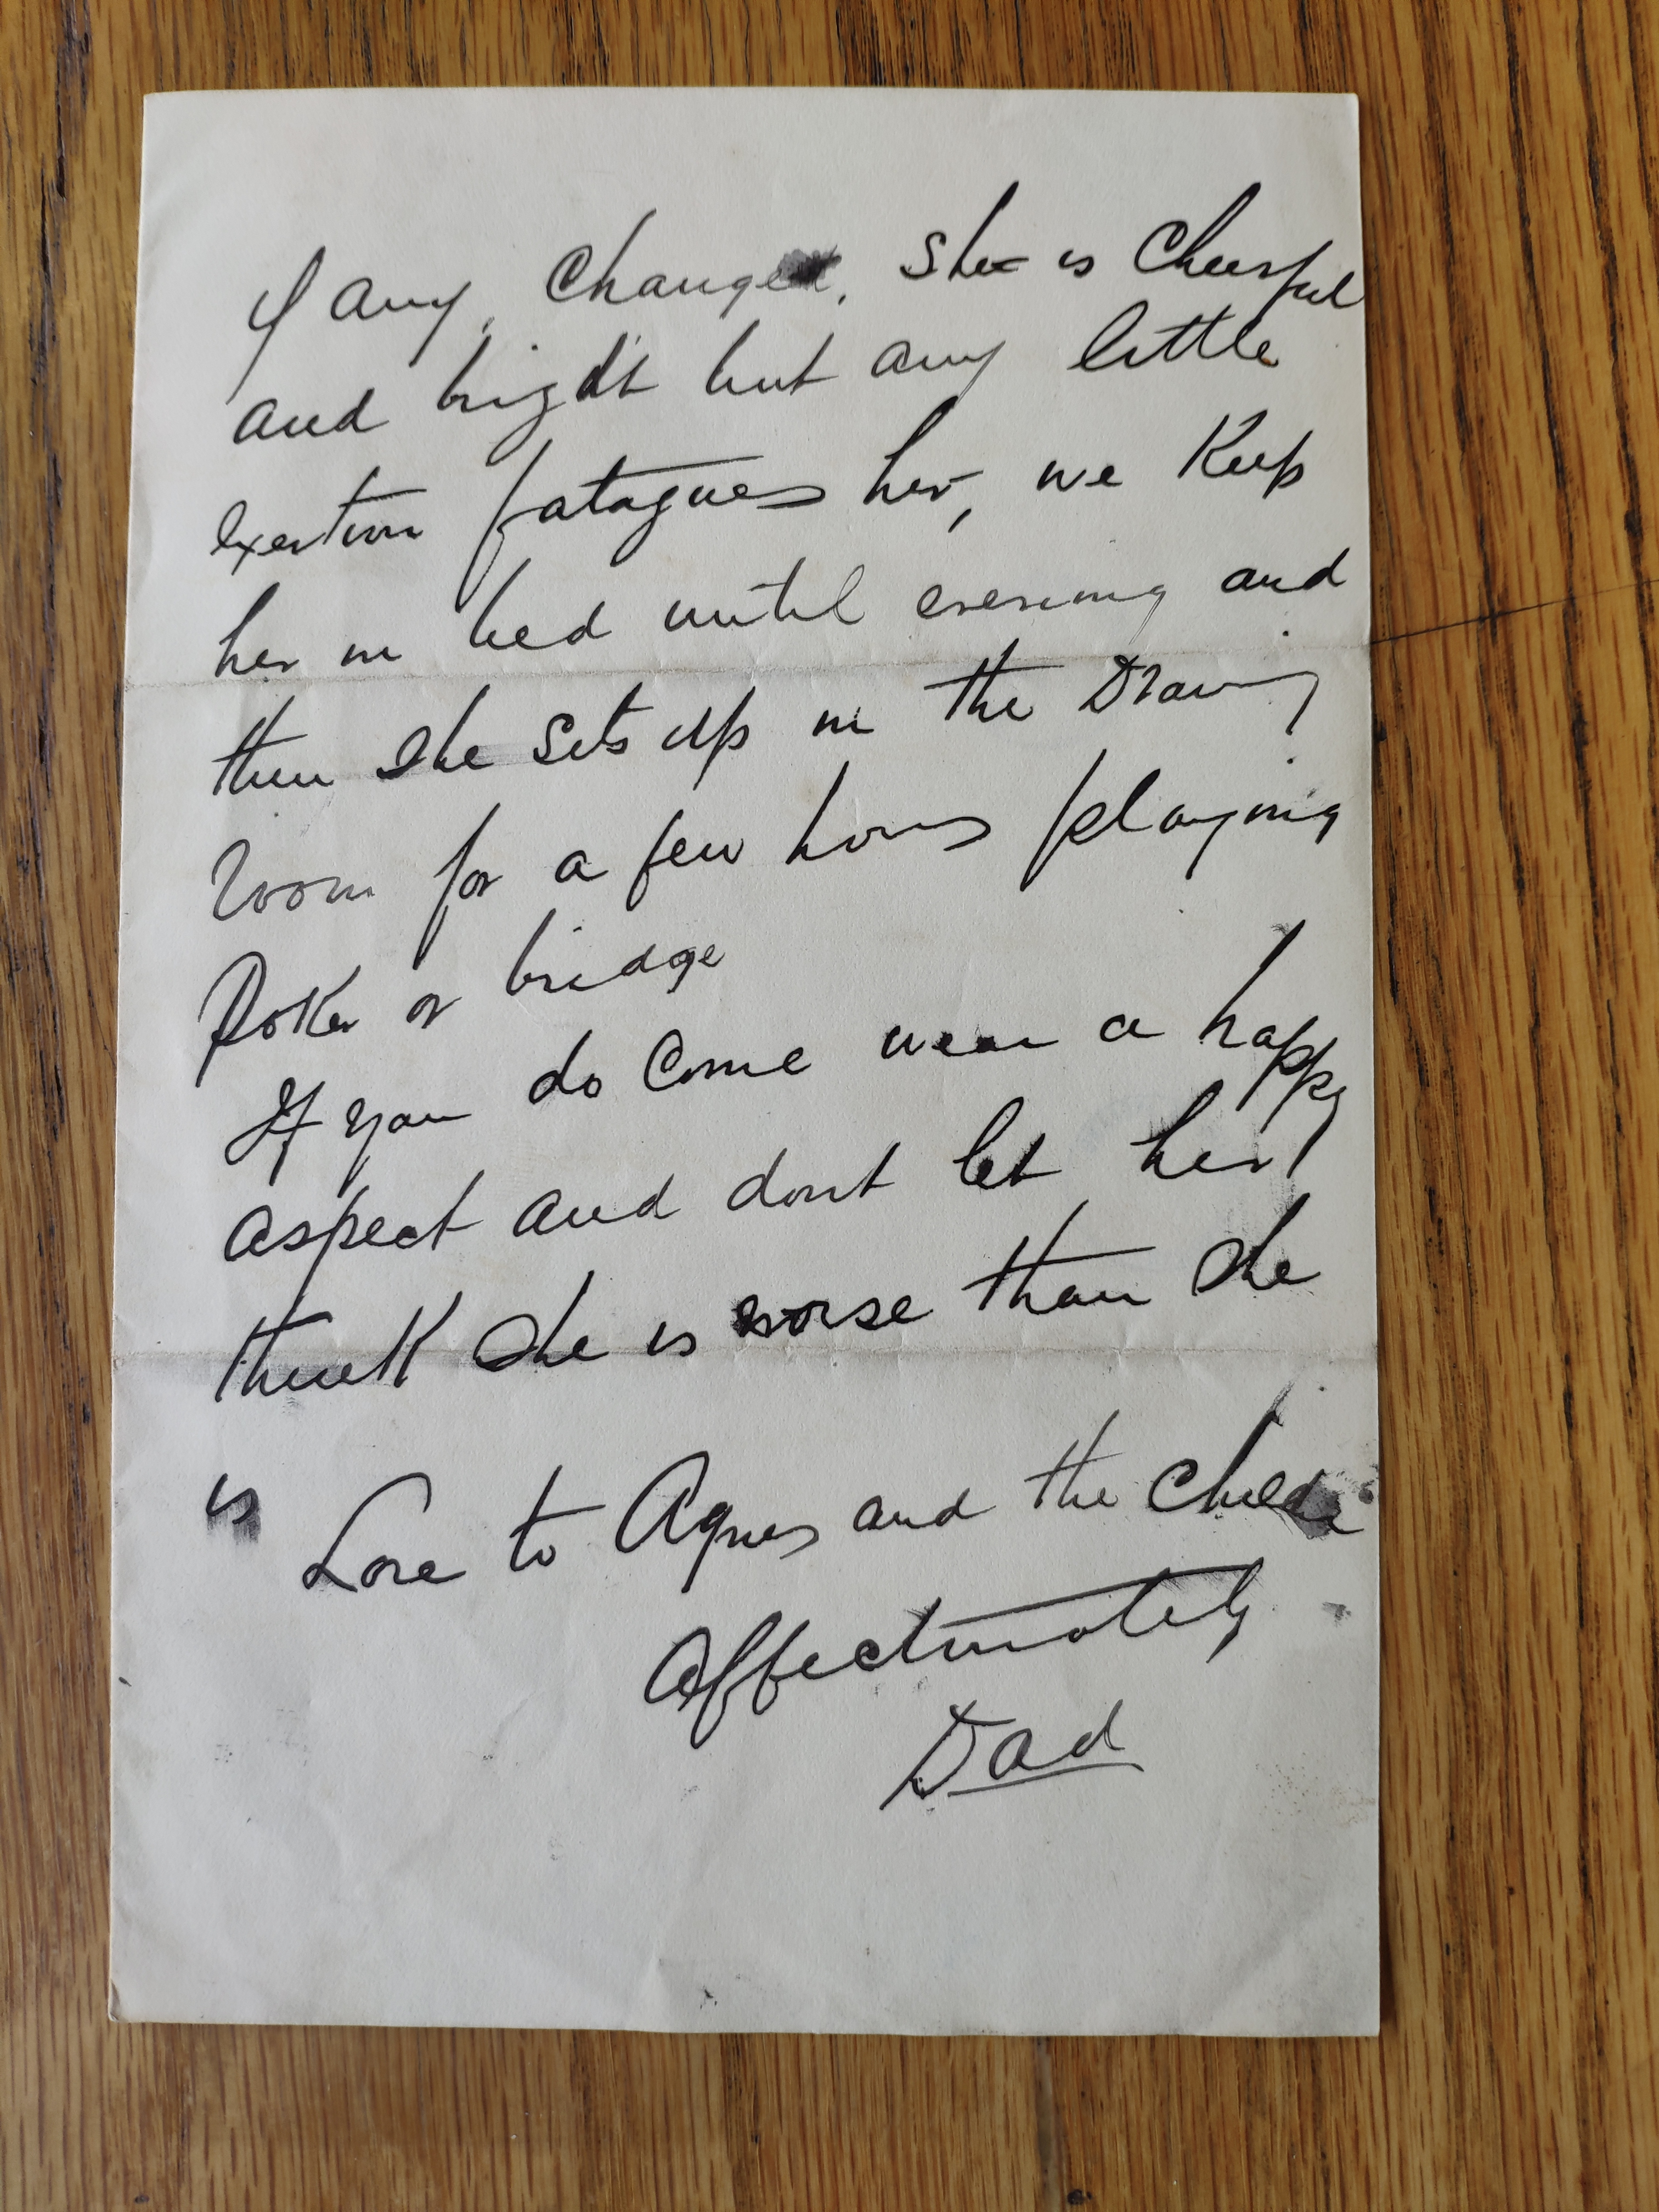 of any, change. She is Cheerful
and bright but any little
exertion fatagues her, we Keep
her in bed until evening and
then she sits up in the Drawing
room for a few hours playing
Poker or bridge
If you do Come wear a happy
aspect and dont let her
think She is worse than She
is
Love to Agnes and the
Affectionately
Dad